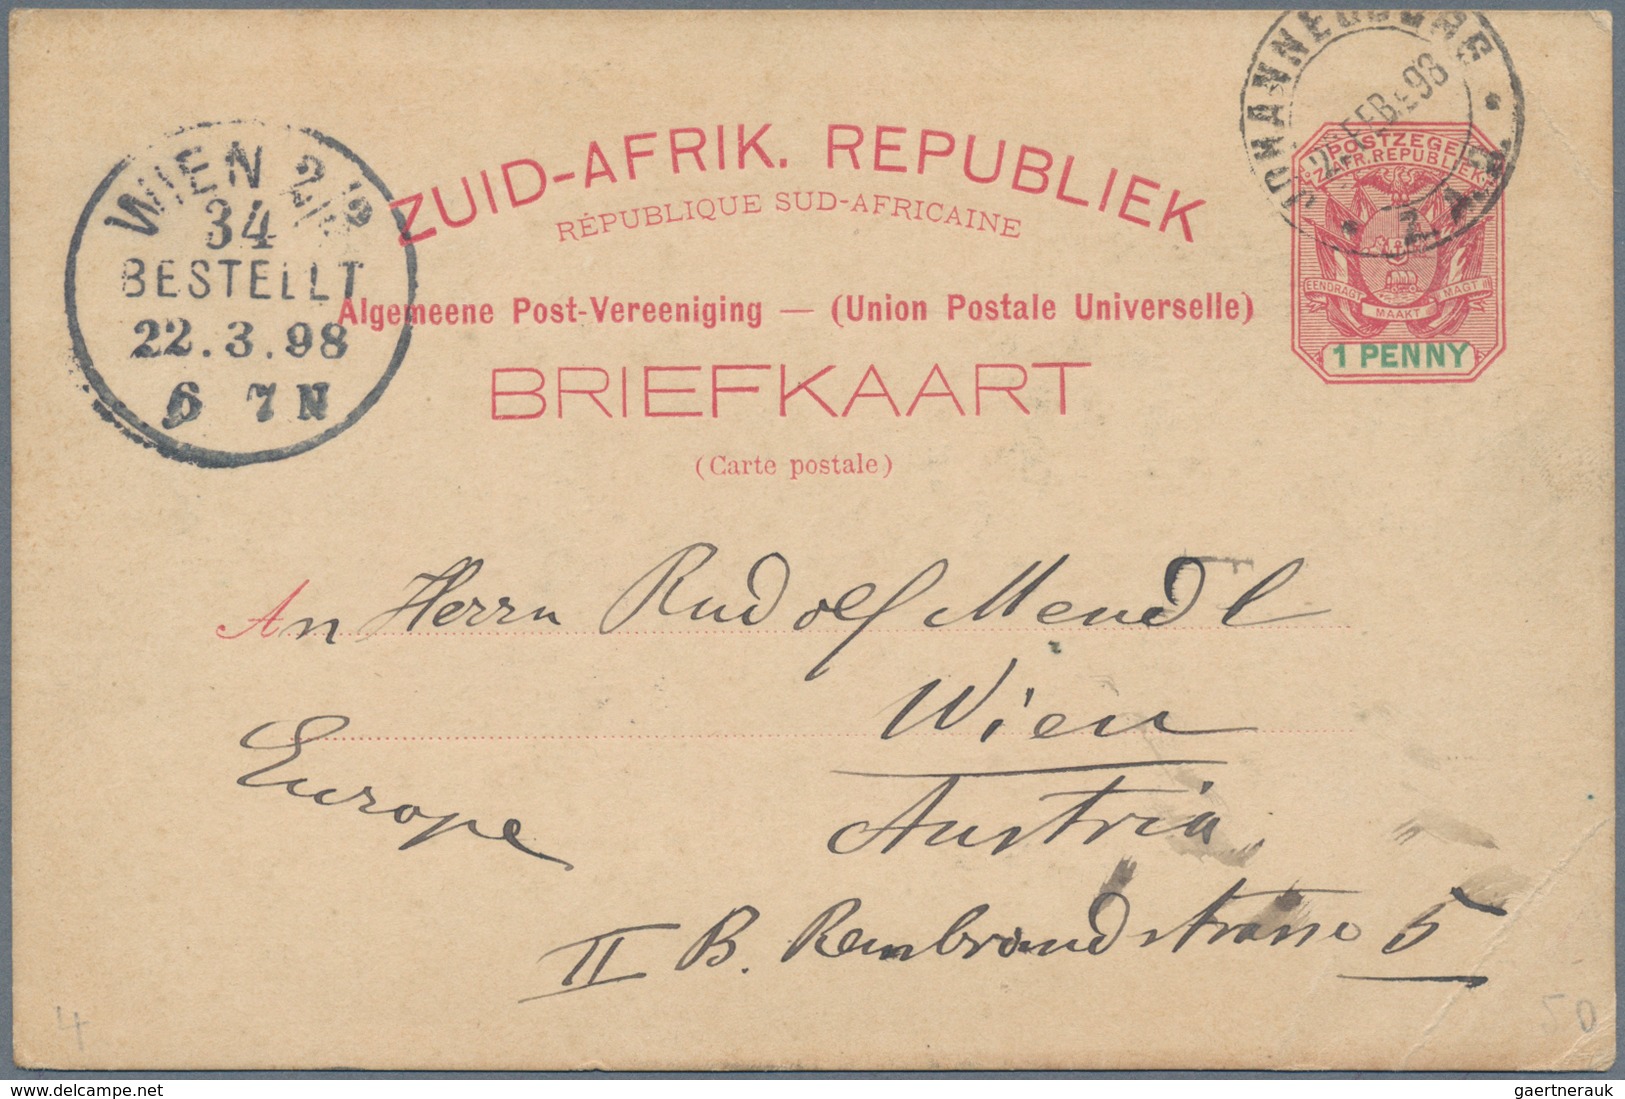 ZUID-AFRIK. REPUBLIEK
RÉPUBLIQUE SUD-AFRICAINE
Algemeene Post-Vereeniging — (Union Postale Universelle)
BRIEFKAART
(Carte postale)
WIEN 2/2
34
BESTELLT
22.3.98
6 7 N
JOHANNESBURG
FEB 98
Z.A.R.
POSTZEGEL
Z.AFR.REPUBLIEK
EENDRAGT MAAKT MAGT
1 PENNY
An Herrn Rudolf Mendl
Wien
Europe
Austria
II B. Rembrandtstrasse 5
4
50
gaertnerauk